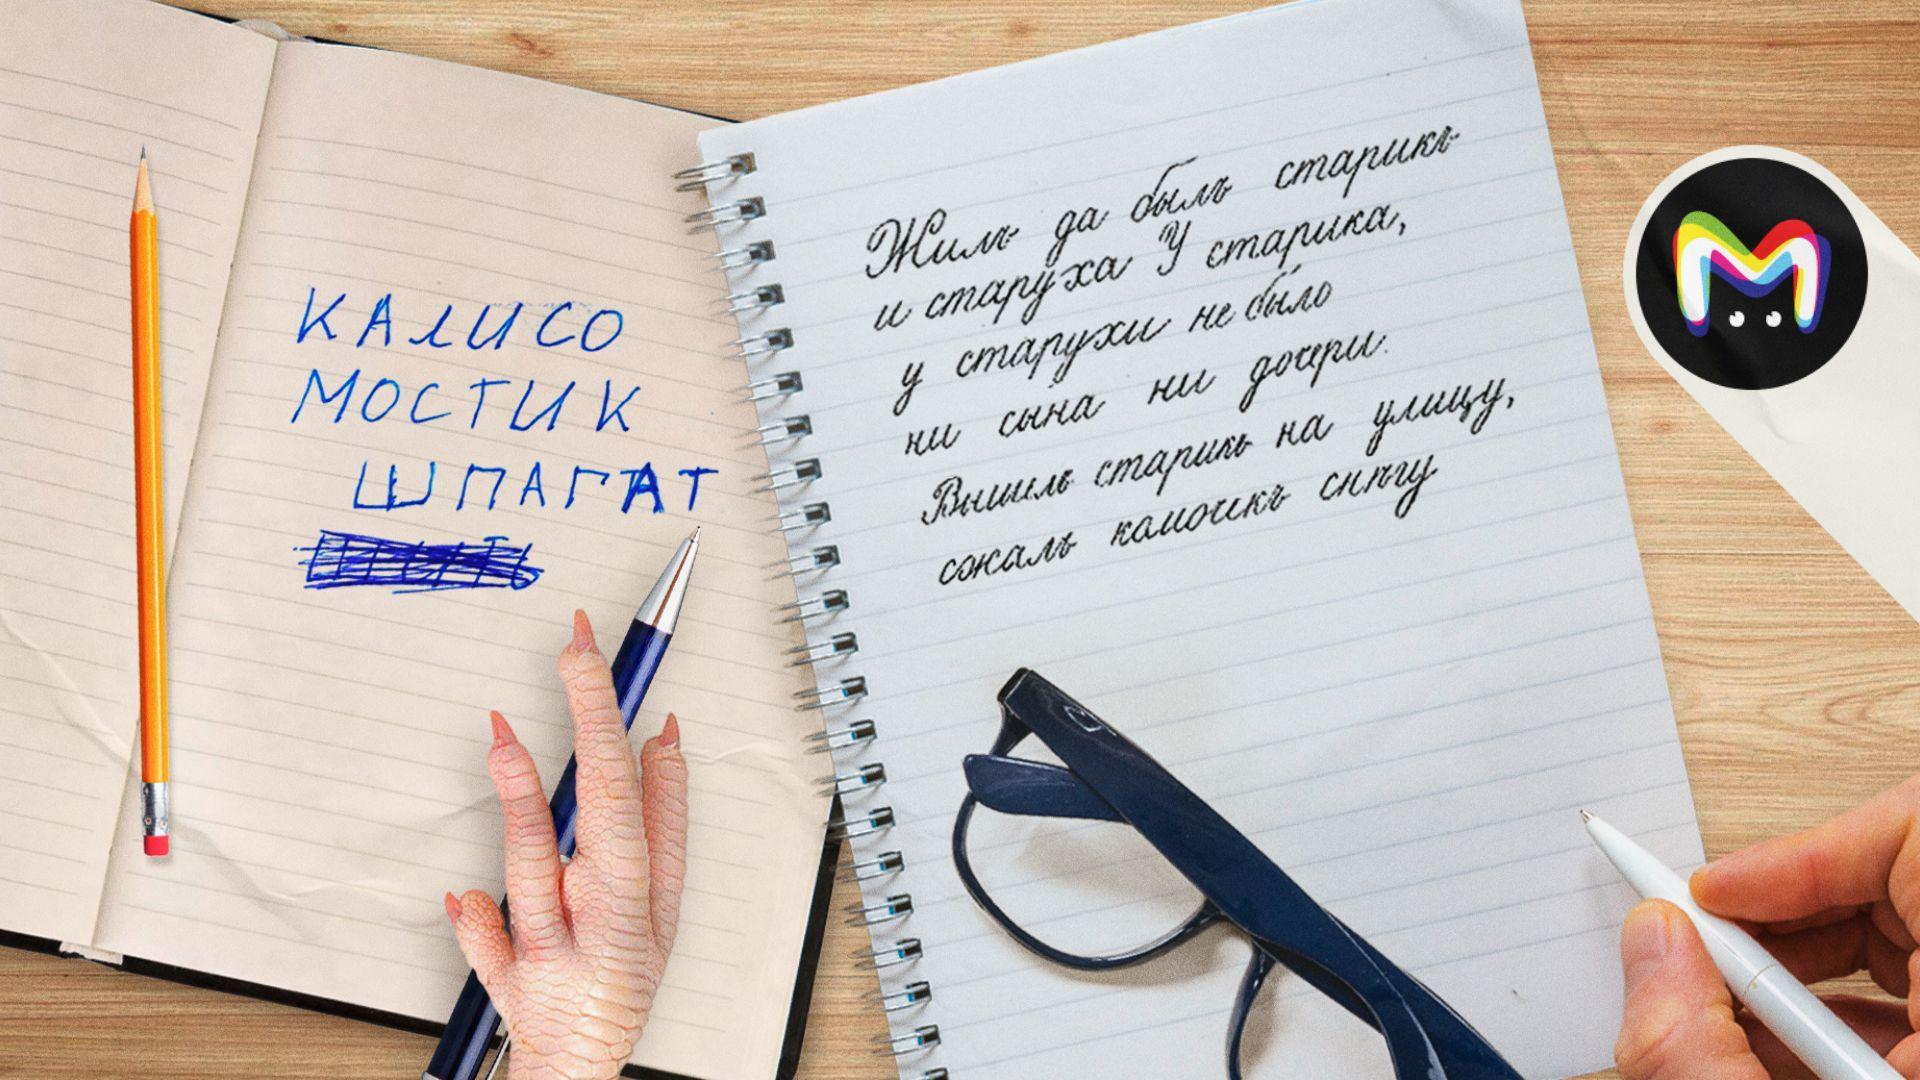 КАЛИСО
МОСТИК
ШПАГАТ
Жилъ да былъ старикъ
и старуха У старика,
у старухи не было
ни сына ни дочери.
Вышилъ старикъ на улицу,
сжалъ комочикъ снѣгу